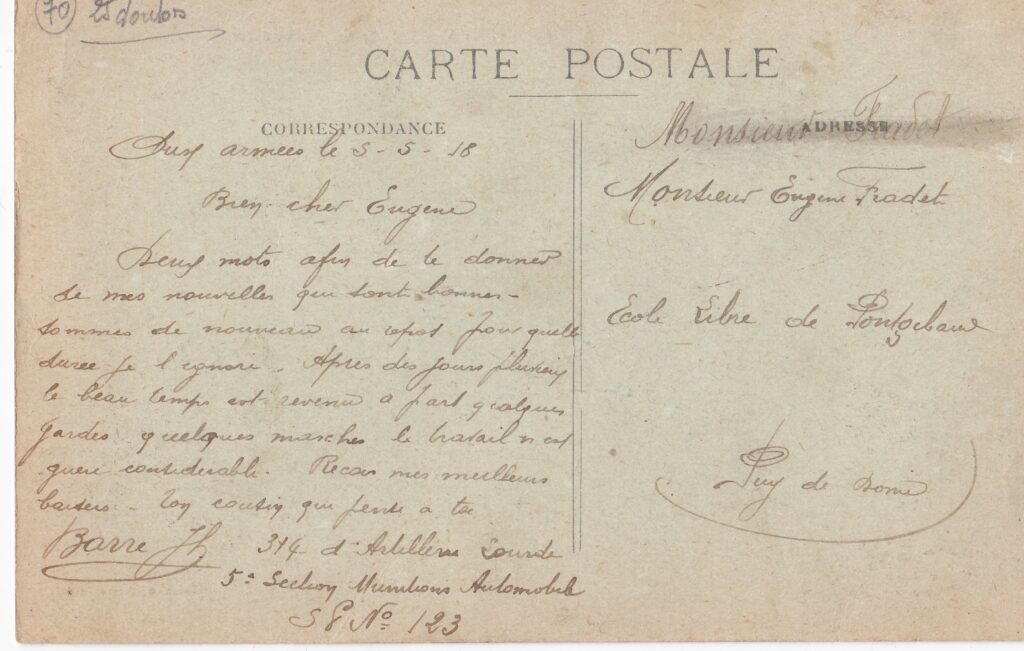 70
CARTE POSTALE
CORRESPONDANCE
ADRESSE
Aux armées le 5-5-18
Bien cher Eugène
Deux mots afin de te donner
de mes nouvelles qui sont bonnes -
sommes de nouveau au repos pour quelle
durée je l ignore. Après des jours pluvieux
le beau temps est revenu a part quelques
gardes quelques marches le travail n est
guere considerable. Recois mes meilleurs
baisers - Ton cousin qui pense a toi
Barre
314 d'Artillerie Lourde
5e Section Munitions Automobile
S P No 123
Monsieur Fradet
Monsieur Eugene Fradet
Ecole Libre de Pontgibaud
Puy de Dome